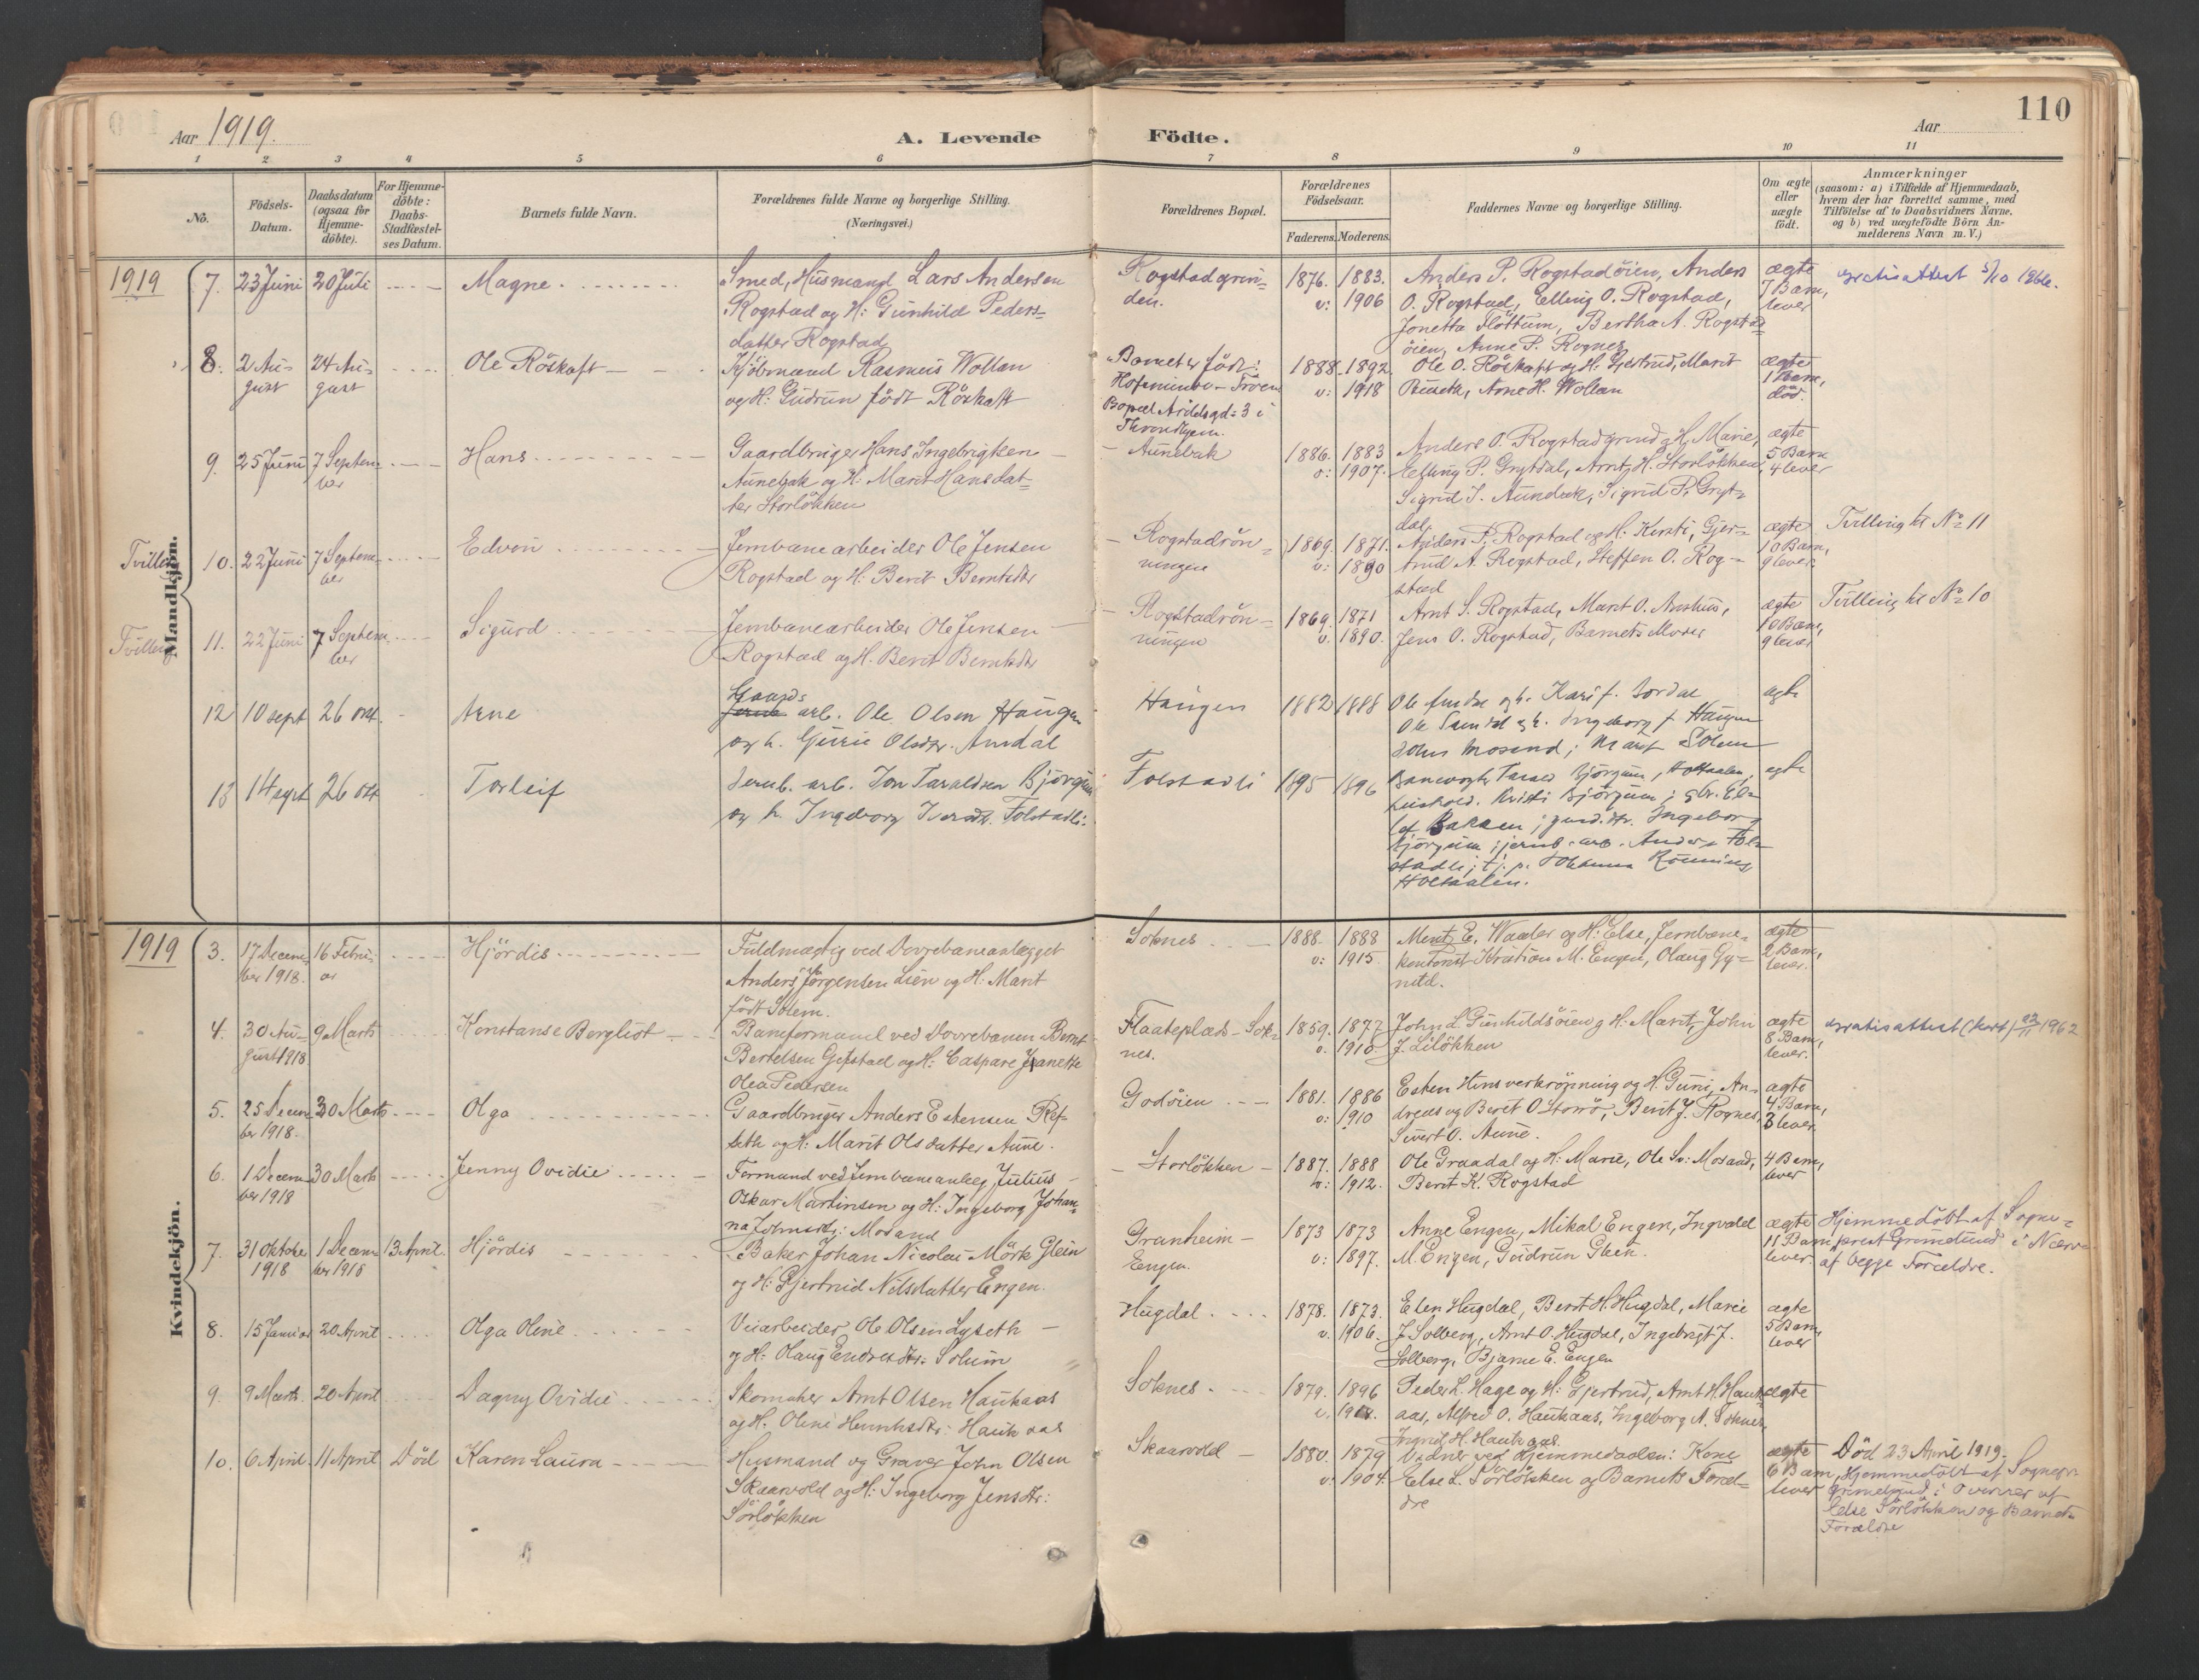 110
Aar 1919.
A. Levende Födte.
Aar
1 2 3 4 5 6 7 8 9 10 11
No.
Födsels-Datum.
Daabsdatum (ogsaa for Hjemme-döbte).
For Hjemme-döbte: Daabs-Stadfæstel-ses Datum.
Barnets fulde Navn.
Forældrenes fulde Navne og borgerlige Stilling.
(Næringsvei.)
Forældrenes Bopæl.
Forældrenes Födselsaar.
Faderens. Moderens.
Faddernes Navne og borgerlige Stilling.
Om ægte eller uægte født.
Anmærkninger
(saasom: a) i Tilfælde af Hjemmedaab,
hvem der har forrettet samme, med
Tilföielse af to Daabsvidners Navne,
og b) ved uægtefödte Börn An-
melderens Navn m. V.)
Mandkjön.
1919
7. 23 Juni 20 Juli Magne
Smed, Husmand Lars Andersen
Rogstad og H: Gunhild Peders=
datter Rogstad
Rogstadgrin=
den.
1876. 1883.
v: 1906
Anders P. Rogstadöien, Anders
O. Rogstad, Elling O. Rogstad,
Jonetta Flöttum, Bertha A. Rogstad
öien, Anne P. Rognes
ægte
7 Barn,
lever
gratisattest 5/10 1966.
8. 2 Au-
gust
24 Au-
gust
Ole Röskaft
Kjöbmand Rasmus Wollan
og H: Gudrun födt Röskaft
Barnet er födt:
Bopæl Arildsgd. 3 i
Throndhjem.
1888. 1892
v: 1918
Ole O. Röskaft og H. Gjertrud, Marit
Arne H. Wollan
ægte
1 Barn,
död.
9. 25 Juni 7 Septem-
ber
Hans
Gaardbruger Hans Ingebrigtsen
Aunebak og H: Marit Hansdat=
ter Storlökken
Aunebak
1886. 1883
v: 1907.
Anders O. Rogstadgrind og H. Marie,
Elling P. Grytdal, Arnt H. Storlökken,
Sigrid I. Aunebak, Sigrid P. Gryt=
dal,
ægte
5 Barn
4 lever
Tvilling 10. 22 Juni 7 Septem-
ber
Edvin
Jernbanearbeider Ole Jensen
Rogstad og H: Berit Berntsdtr
Rogstadrön=
ningen
1869. 1871.
v: 1890
Anders P. Rogstad og H. Kirsti, Gjer-
trud A. Rogstad, Steffen O. Rog-
stad
ægte
10 Barn,
9 lever.
Tvilling til No 11
Tvilling 11. 22 Juni 7 Septem-
ber
Sigurd
Jernbanearbeider Ole Jensen
Rogstad og H. Berit Berntsdtr
Rogstadrön-
ningen
1869. 1871
v. 1890.
Arnt S. Rogstad, Marit O. Aashus,
Jens O. Rogstad, Barnets Moder
ægte
10 Barn,
9 lever
Tvilling til No 10
12 10 sept 26 okt. Arne
Gaards
Jernb arb. Ole Olsen Haugen
og h. Gurie Olsdtr. Amdal
Haugen
1882 1888
Ole Amdal og h. Kari f.
Ole Amdal og h. Ingeborg f. Haugen
John Mosand; Marit Solem
ægte
13 14 sept 26 okt Torleif
Jernb. arb. Jon Taraldsen Bjørgum
og h. Ingeborg Iversdr. Folstadli.
Folstadli
1895 1896
Banevogter Tarald Bjørgum, Holtaalen,
Kristi Bjørgum; gbr. El-
lef Bakken; Ingeborg
Bjørgum; jernb. arb. Anders Fol-
stadli; tj. p. Johanna Rönning,
Holtaalen.
ægte
Kvindekjön.
1919
3. 17 Decem-
ber 1918.
16 Febru-
ar
Hjördis
Fuldmægtig ved Dovrebaneanlægget
Anders Jörgensen Lien og H: Marit
födt Solem.
Soknes
1888. 1888
v: 1915
Ment E. Waaler og H: Else, Jernbane-
kontorist Kristian M. Engen, Olaug Gy=
nild.
ægte
2 Barn,
lever.
4. 30 Au-
gust 1918
9 Marts Konstanse Bergliot
Baneformand ved Dovrebanen Bernt
Bertelsen Gefstad og H: Caspare Jeanette
Olea Pedersen
Flaateplads-Sok-
nes.
1859. 1877
v. 1910
John L. Gunhildsöien og H: Marit, John
J. Lilökken
ægte
8 Barn,
lever.
gratisattest (kort) 23/11 1962
5. 25 Decem-
ber 1918.
30 Marts Olga
Gaardbruger Anders Estensen Ref-
seth og H: Marit Olsdatter Aune.
Godöien
1881. 1886
v: 1910
Esten og H. Guri, An-
dreas og Beret O. Storrö, Berit J. Rognes,
Sivert O. Aune.
ægte
4 Barn,
3 lever.
6. 1 Decem-
ber 1918
30 Marts Jenny Ovidie
Formand ved Jernbaneanlæg Julius
Oskar Martinsen og H: Ingeborg Johan-
na Johnsdtr: Mosand
Storlökken
1887. 1888
v: 1912.
Ole Graadal og H: Marie, Ole Sv: Mosand,
Berit K. Rogstad
4 Barn,
lever
7. 31 Oktober
1918
1 Decem-
ber 1918
13 April. Hjördis
Baker Johan Nicolai Mörk Glein
og H: Gjertrud Nilsdatter Engen.
Granheim-
Engen.
1873 1873
v: 1897.
Anne Engen, Mikal Engen, Ingvald
M. Engen, Gudrun Glein.
ægte
11 Barn
lever.
Hjemmedöbt af Sogne-
prest Grimelund i Nærvær
af begge Forældre.
8. 15 Januar 20 April Olga Oline
Veiarbeider Ole Olsen Lyseth
og H: Olaug Endresdtr: Solum
Hugdal
1878. 1873.
v. 1906.
Esten Hugdal, Berit H. Hugdal, Marie
J. Solberg, Arnt O. Hugdal, Ingebrigt J.
Solberg, Bjarne E. Engen
ægte
5 Barn,
lever
9. 9 Marts. 20 April Dagny Ovidie
Skomaker Arnt Olsen Haukaas
og H. Oline Henriksdtr: Haukaas
Soknes
1879. 1896
Peder L. Hage og H: Gjertrud, Arnt H. Hauk=
aas, Alfred O. Haukaas, Ingeborg A. Soknes
Ingrid H. Haukaas
ægte
10. 6 April 11 April Död Karen Laura
Husmand og Graver John Olsen
Skaarvold og H: Ingeborg Jensdtr:
Sörlökken
Skaarvold
1880. 1879
v. 1904.
Vidner ved Hjemmedaaben: Kone
Else L. Sörlökken og Barnets Foræl-
dre
ægte
6 Barn,
lever
Död 23 April 1919.
Hjemmedöbt af Sognepr.
Grimelund i Overvær af
Else Sörlökken og Barnets
Forældre